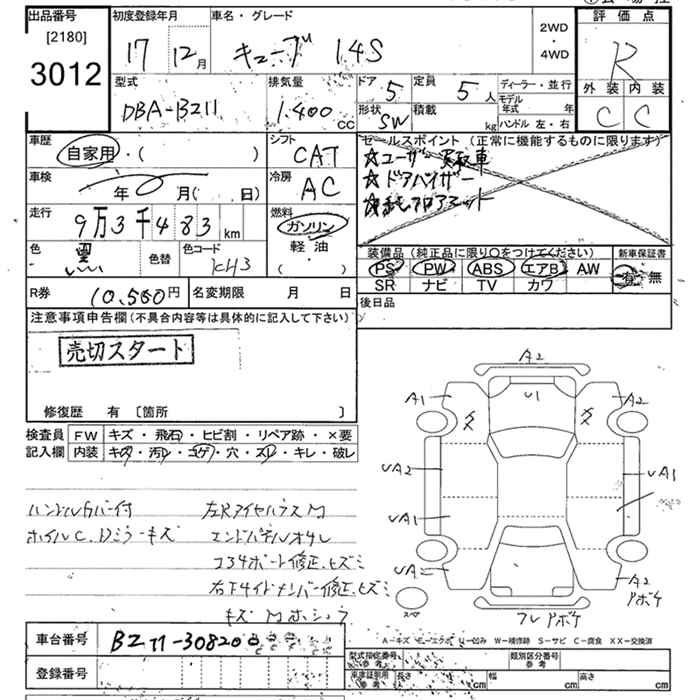 出品番号
[2180]
3012
初度登録年月
17 12月
車名・グレード
キューブ 1.4S
2WD
・
4WD
評価点
R
外装 内装
C C
型式
DBA-BZ11
排気量
1.400 cc
ドア 5
定員 5人
ディーラー・並行
モデル年式 年
形状 SW
積載 kg
ハンドル 左・右
車歴
自家用・( )
シフト
CAT
セールスポイント (正常に機能するものに限ります)
☆ユーザー買取車
☆ドアバイザー
車検
年 月( 日)
冷房
AC
走行
9万3千483km
燃料
ガソリン
軽油
( )
色
色替
色コード
KH3
装備品 (純正品に限り○をつけてください)
新車保証書
PS PW ABS エアB AW
有・無
SR ナビ TV カワ
R券 10,560円
名変期限 月 日
後日品
注意事項申告欄(不具合内容等は具体的に記入して下さい)
売切スタート
修復歴 有 〔箇所 〕
検査員 FW キズ・飛石・ヒビ割・リペア跡・×要
記入欄 内装 キズ・汚レ・コゲ・穴・スレ・キレ・破レ
ハンドルカバー付
ホイルC.Dミラーキズ
エンドパネルオサレ
修正.ヒズミ
A2
A1
U1
A2
UA2
UA1
UA1
UA
A2
アボケ
スペ
フレアボケ
車台番号 BZ11-308200
A-キズ E-エクボ U-凹み W-補修跡 S-サビ C-腐食 XX-交換済
登録番号
型式指定番号
参考
類別区分番号
参考
車庫証明用
参考
長さ cm
幅 cm
高さ cm